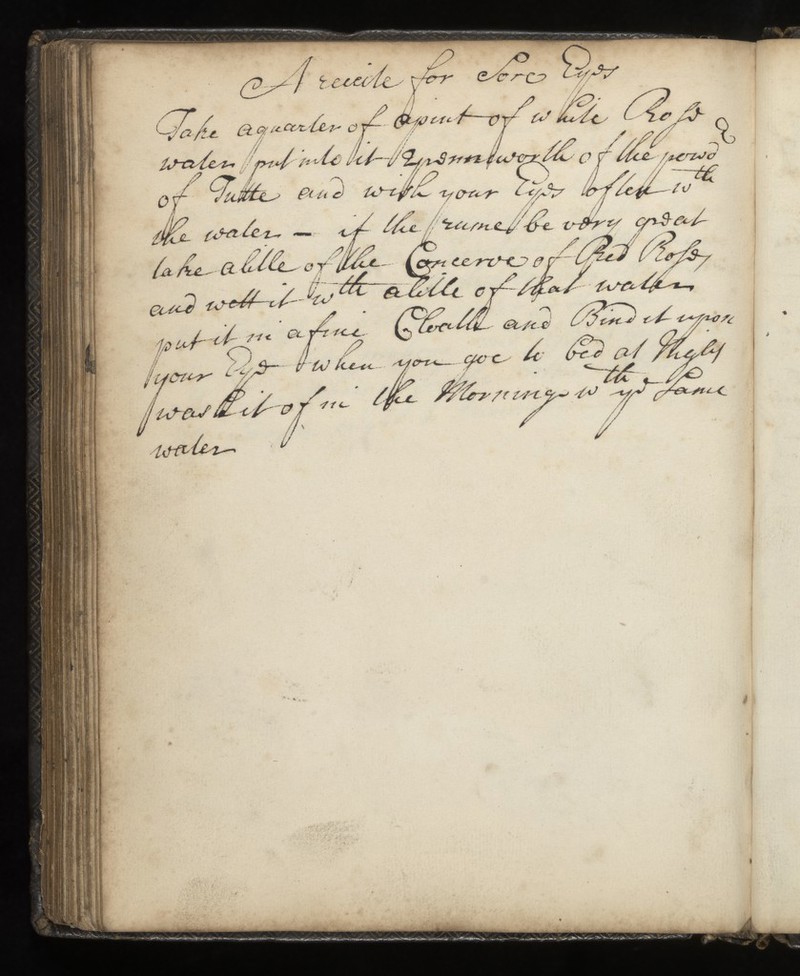 A receite for Sore Eyes
Take a quarter of a pint of white Rose
water put into it 2 pennworth of the powdr
of Tutte and wish your Eyes often wth
the water – if the rume be very great
take a litle of the Concerve of Red Roses
and wett it wth a litle of that water
put it in a fine Cloath and Bind it upon
your Eye when you goe to bed at Night
wash it of in the Morninge wth ye Same
water